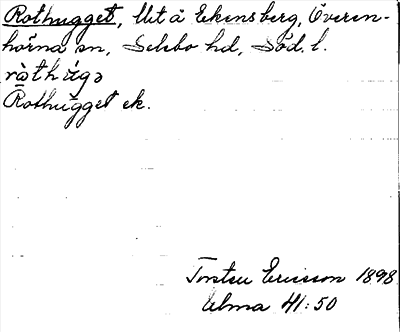 Rothugget, litt å Ekensberg, Överen-
hörna sn, Selebo hd, Söd. l.
ròthúgə
Rothugget ek.
Torsten Ericsson 1898
Ulma 41:50